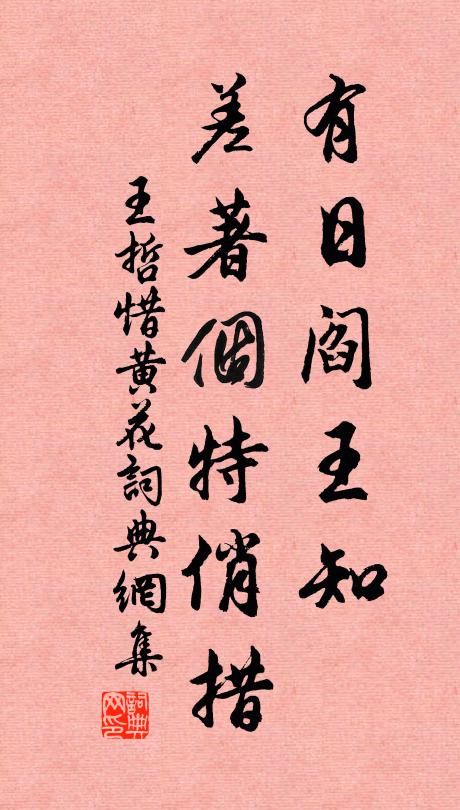 有日閻王知
差著個特俏措
王哲惜黄花詞典網集
詞典网印